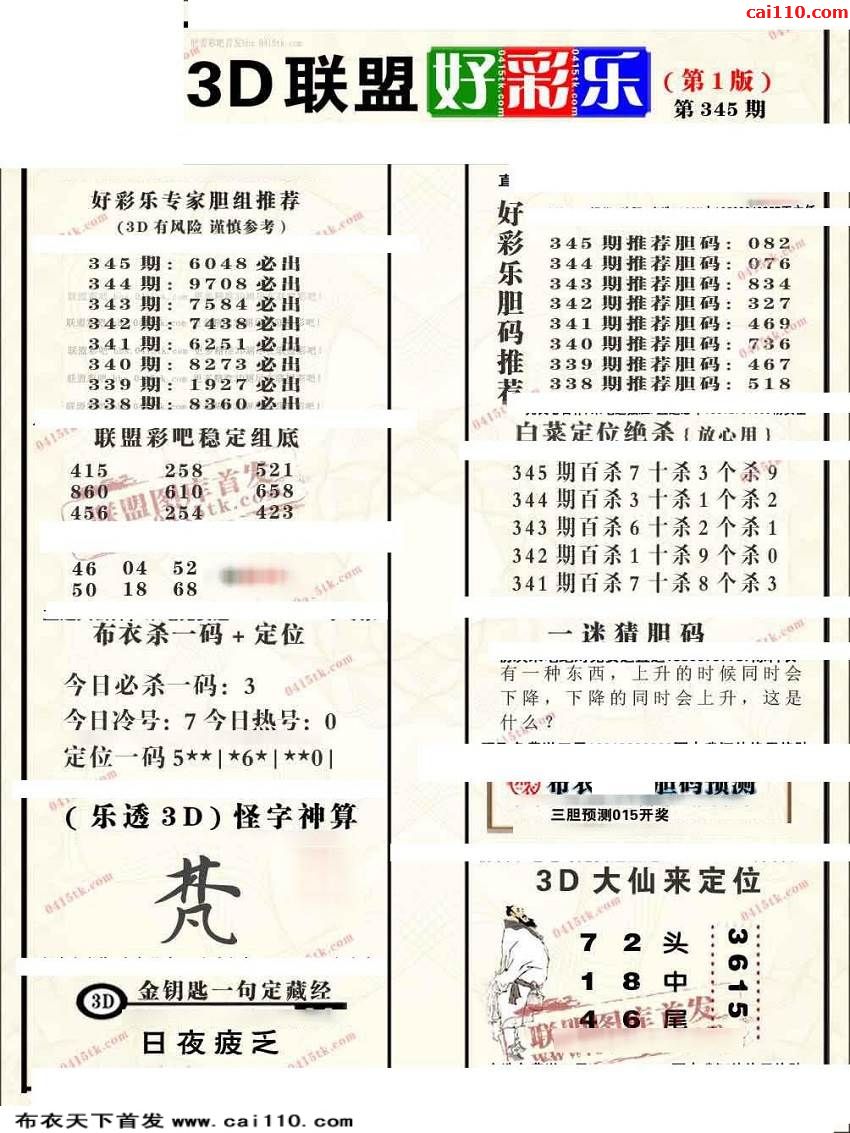 cai110.com
3D联盟好彩乐
(第1版)
第345期
好彩乐专家胆组推荐
(3D有风险 谨慎参考)
345期: 6048必出
344期: 9708必出
343期: 7584必出
342期: 7438必出
341期: 6251必出
340期: 8273必出
339期: 1927必出
338期: 8360必出
联盟彩吧稳定组底
415 258 521
860 610 658
456 254 423
46 04 52
50 18 68
布衣杀一码+定位
今日必杀一码: 3
今日冷号: 7 今日热号: 0
定位一码 5**|*6*|**0|
(乐透3D)怪字神算
梵
3D 金钥匙一句定藏经
日夜疲乏
好彩乐胆码推荐
345期推荐胆码: 082
344期推荐胆码: 076
343期推荐胆码: 834
342期推荐胆码: 327
341期推荐胆码: 469
340期推荐胆码: 736
339期推荐胆码: 467
338期推荐胆码: 518
白菜定位绝杀{放心用}
345期百杀7十杀3个杀9
344期百杀3十杀1个杀2
343期百杀6十杀2个杀1
342期百杀1十杀9个杀0
341期百杀7十杀8个杀3
一迷猜胆码
有一种东西，上升的时候同时会
下降，下降的同时会上升，这是
什么?
布衣 胆码预测
三胆预测015开奖
3D大仙来定位
7 2 头
1 8 中
4 6 尾
3615
联盟图库首发
0415tk.com
布衣天下首发 www.cai110.com